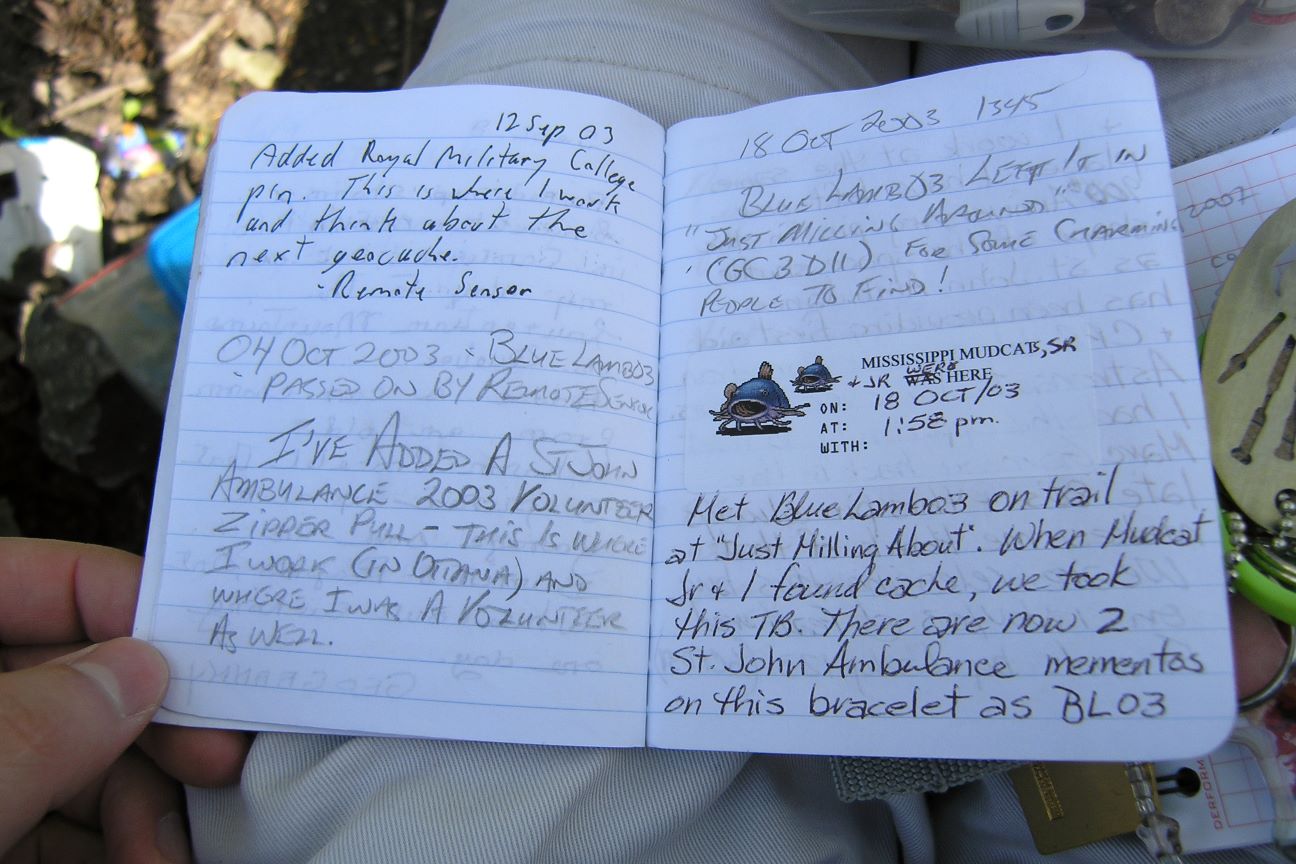 12 Sep 03
Added Royal Military College
pin. This is where I work
and think about the
next geocache.
- Remote Sensor
04 OCT 2003 - BLUE LAMB03
PASSED ON BY REMOTESENSOR
I'VE ADDED A ST JOHN
AMBULANCE 2003 VOLUNTEER
ZIPPER PULL - THIS IS WHERE
I WORK (IN OTTAWA) AND
WHERE I WAS A VOLUNTEER
AS WELL.
18 OCT 2003 1345
BLUE LAMB03 LEFT IT IN
"JUST MILLING AROUND"
(GC3D11) FOR SOME CHARMING
PEOPLE TO FIND!
MISSISSIPPI MUDCATS, SR
+ JR WERE WAS HERE
ON: 18 OCT/03
AT: 1:58 pm.
WITH:
Met BlueLamb03 on trail
at "Just Milling About". When Mudcat
Jr + I found cache, we took
this TB. There are now 2
St. John Ambulance mementos
on this bracelet as BL03
2007
PERFORM